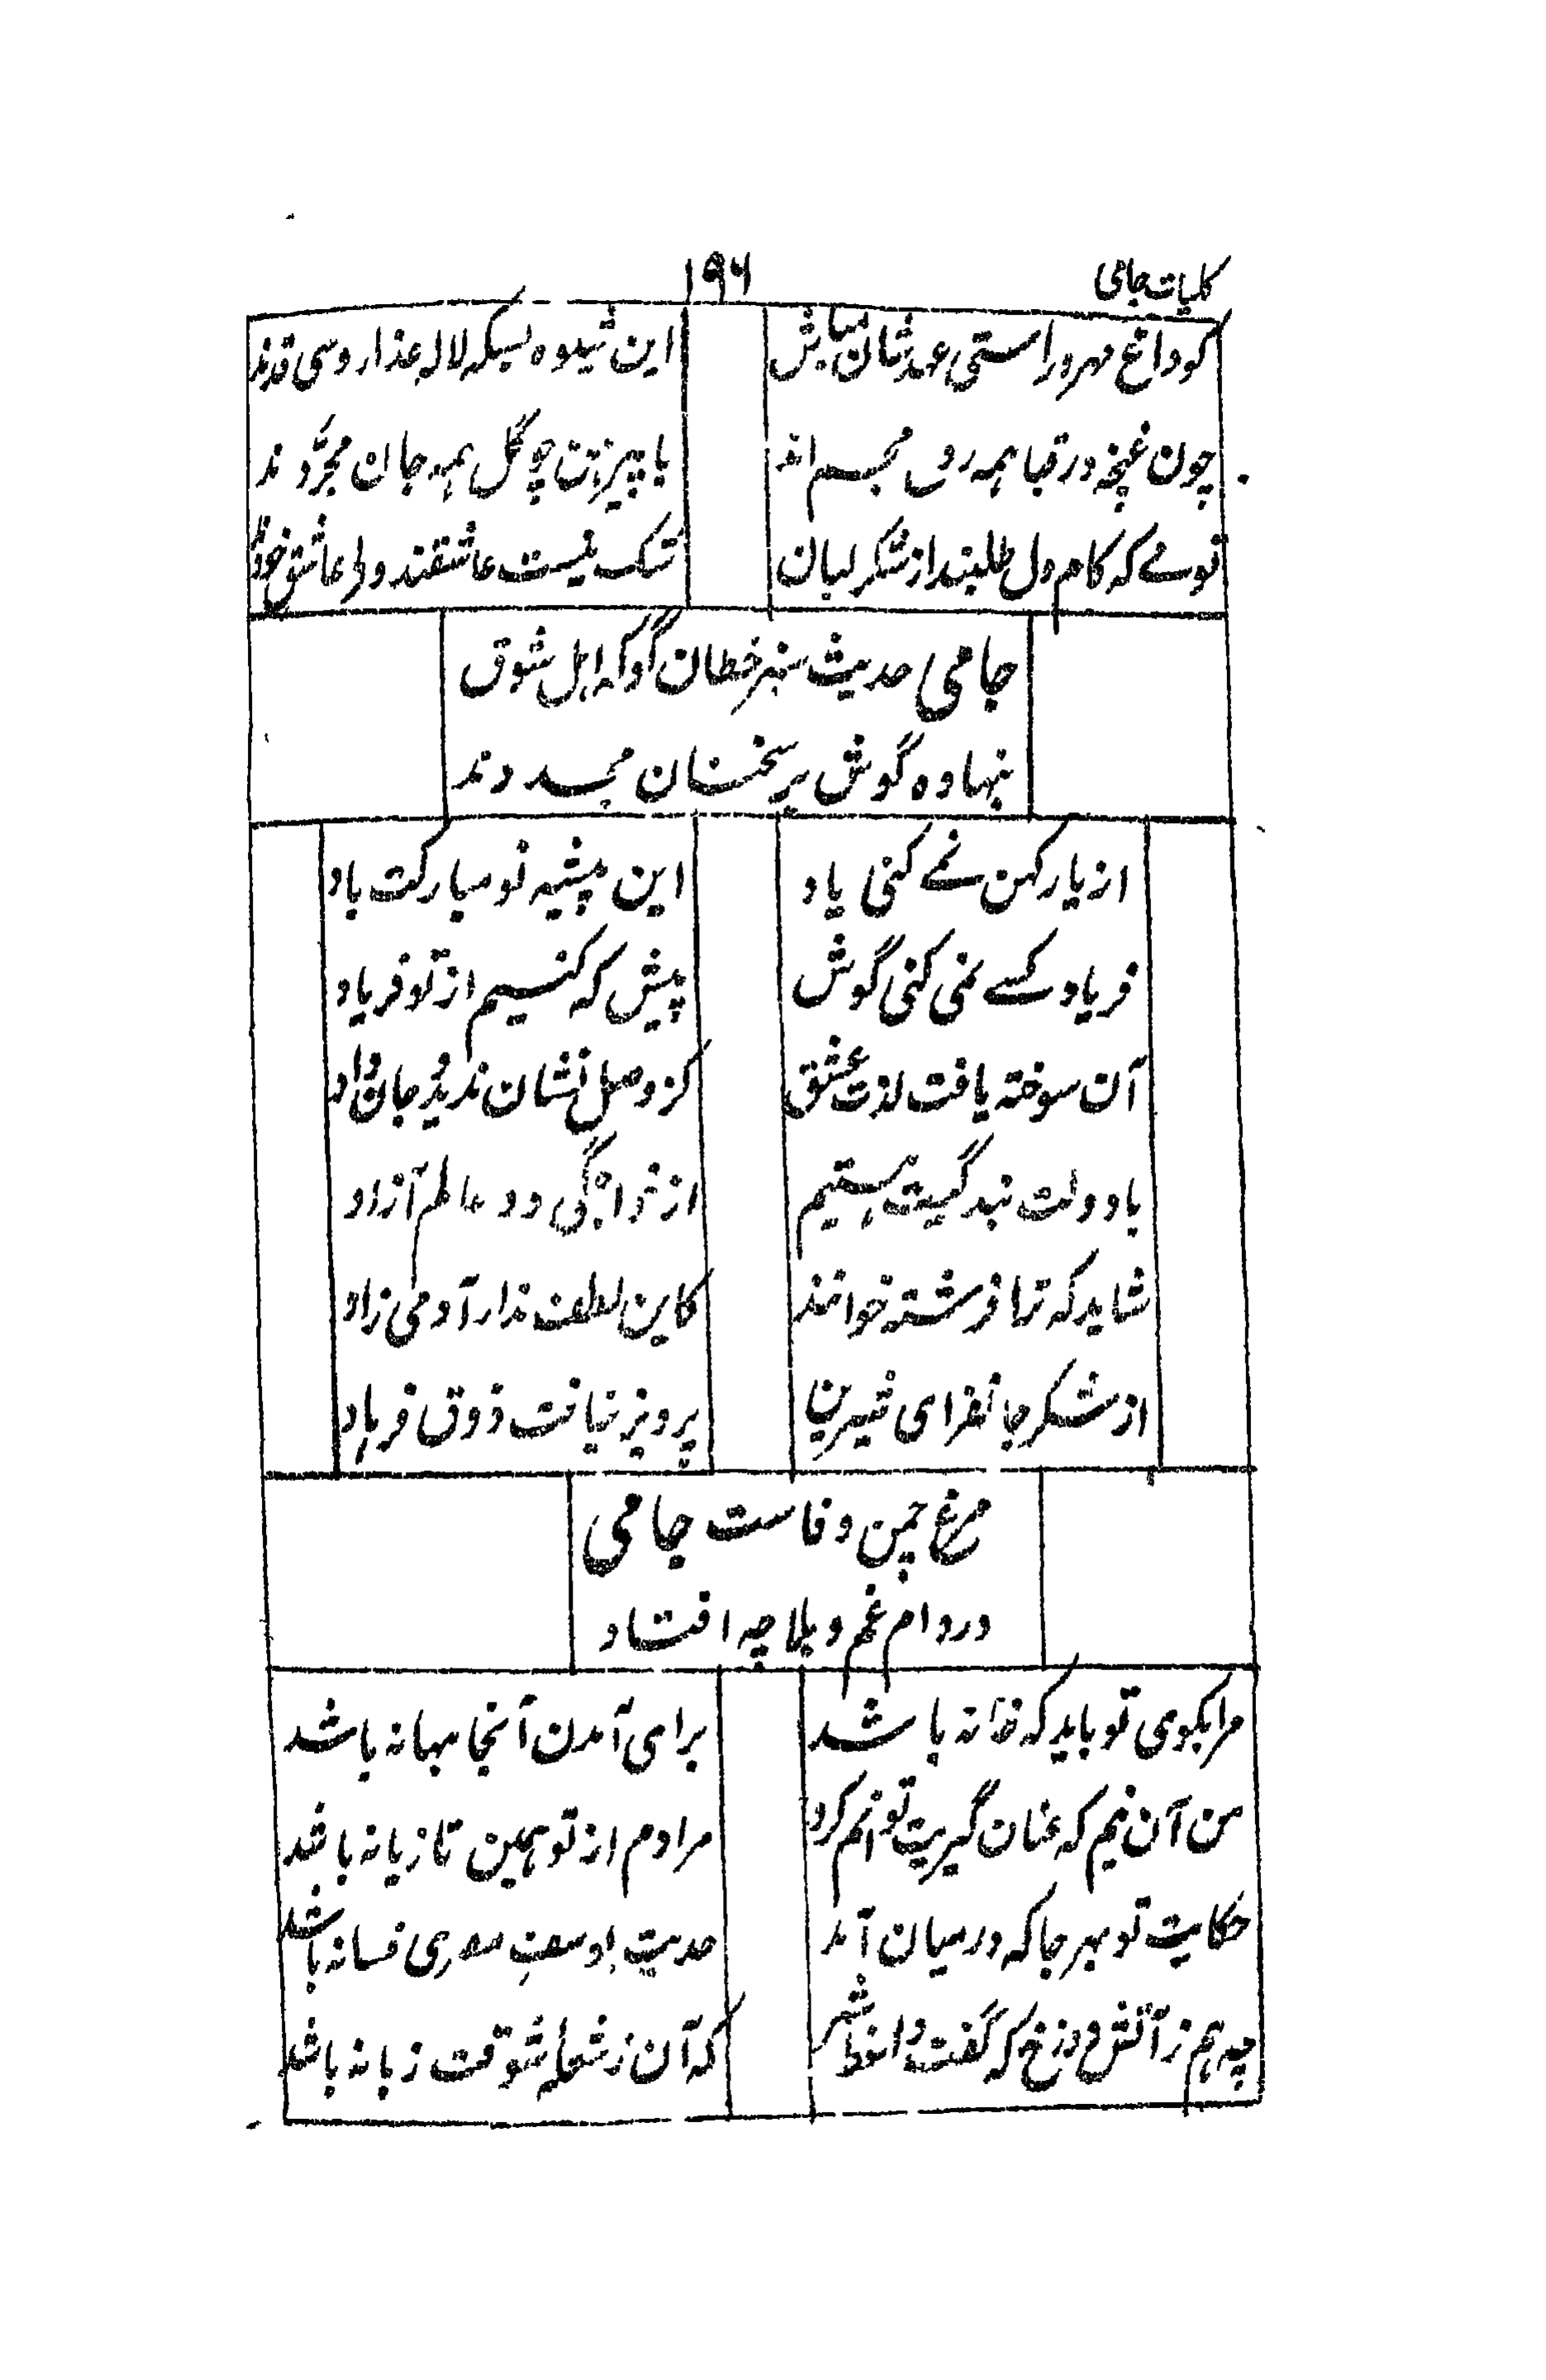 کلیات جامی
۱۹۶
گو داغ مهر و راستی عهدشان مباش
این شیوه بسکه لاله عذار و سهی قدند
چون غنچه در قبا همه روح مجسم اند
با پیرهن چو گل همه جان مجردند
قومے که کام دل طلبند از شکر لبان
شک نیست عاشقند ولی عاشق خودند
جامی حدیث سبز خطان گو که اهل شوق
بنهاده گوش بر سخنان مجددند
از یار کهن نمے کنی یاد
این پیشه نو مبارکت باد
فریاد کسے نمی کنی گوش
پیش که کنیم از تو فریاد
آن سوخته یافت لذت عشق
کز وصل نشان ندید و جان داد
با دولت بندگیت هستیم
از خواجگی دو عالم آزاد
شاید که ترا فرشته خوانند
کاین لطف ندارد آدمی زاد
از شکر جانفزای شیرین
پرویز نیافت ذوق فرهاد
مرغ چمن وفاست جامی
در دام غم و بلا چه افتاد
مرا بکوی تو باید که خانه باشد
برای آمدن آنجا بهانه باشد
من آن نیم که عنان گیریت توانم کرد
مرادم از تو همین تازیانه باشد
حکایت تو بهر جا که در میان آمد
حدیث یوسف مصری فسانه باشد
چه بیم ز آتش دوزخ که گفت واعظ شهر
که آن ز شعله شوقت زبانه باشد